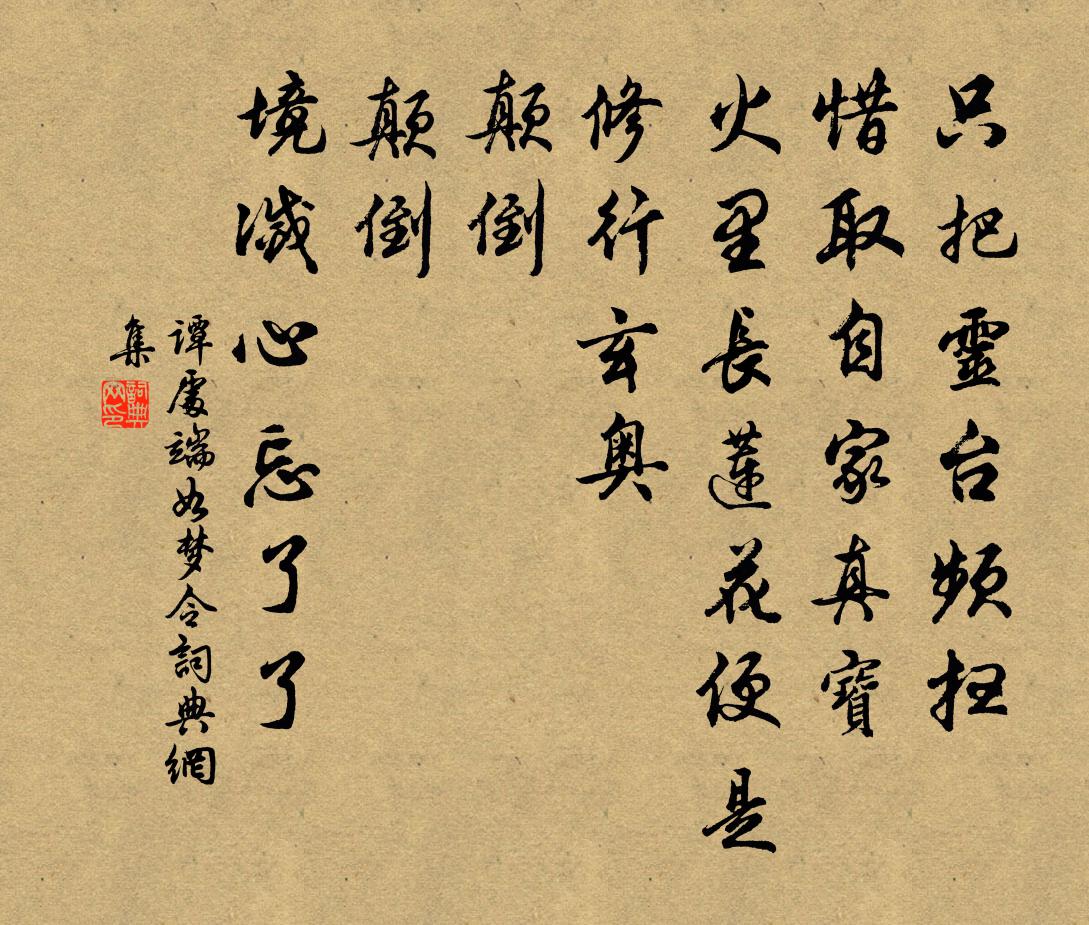 只把靈台頻扫
惜取自家真寶
火里長蓮花便是
修行玄奥
颠倒
颠倒
境滅心忘了了
谭處端如梦令詞典網
集
詞典网印